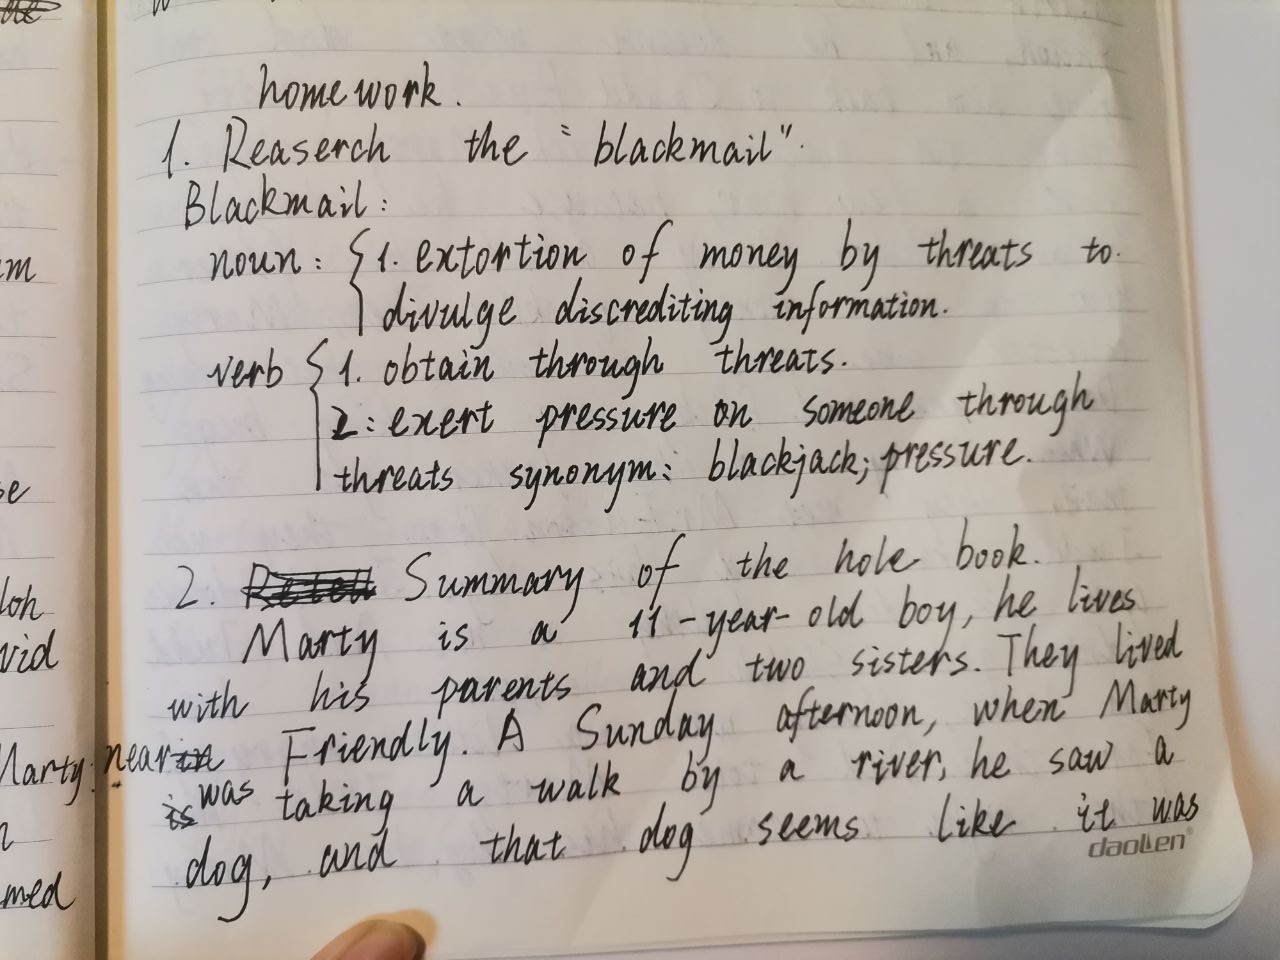 homework.
1. Reaserch the "blackmail".
Blackmail:
noun: { 1. extortion of money by threats to
divulge discrediting information.
verb { 1. obtain through threats.
2: exert pressure on someone through
threats synonym: blackjack; pressure.
2. Summary of the hole book.
Marty is a 11-year-old boy, he lives
with his parents and two sisters. They lived
near in Friendly. A Sunday afternoon, when Marty
is was taking a walk by a river, he saw a
dog, and that dog seems like it was
daolen
Marty
med